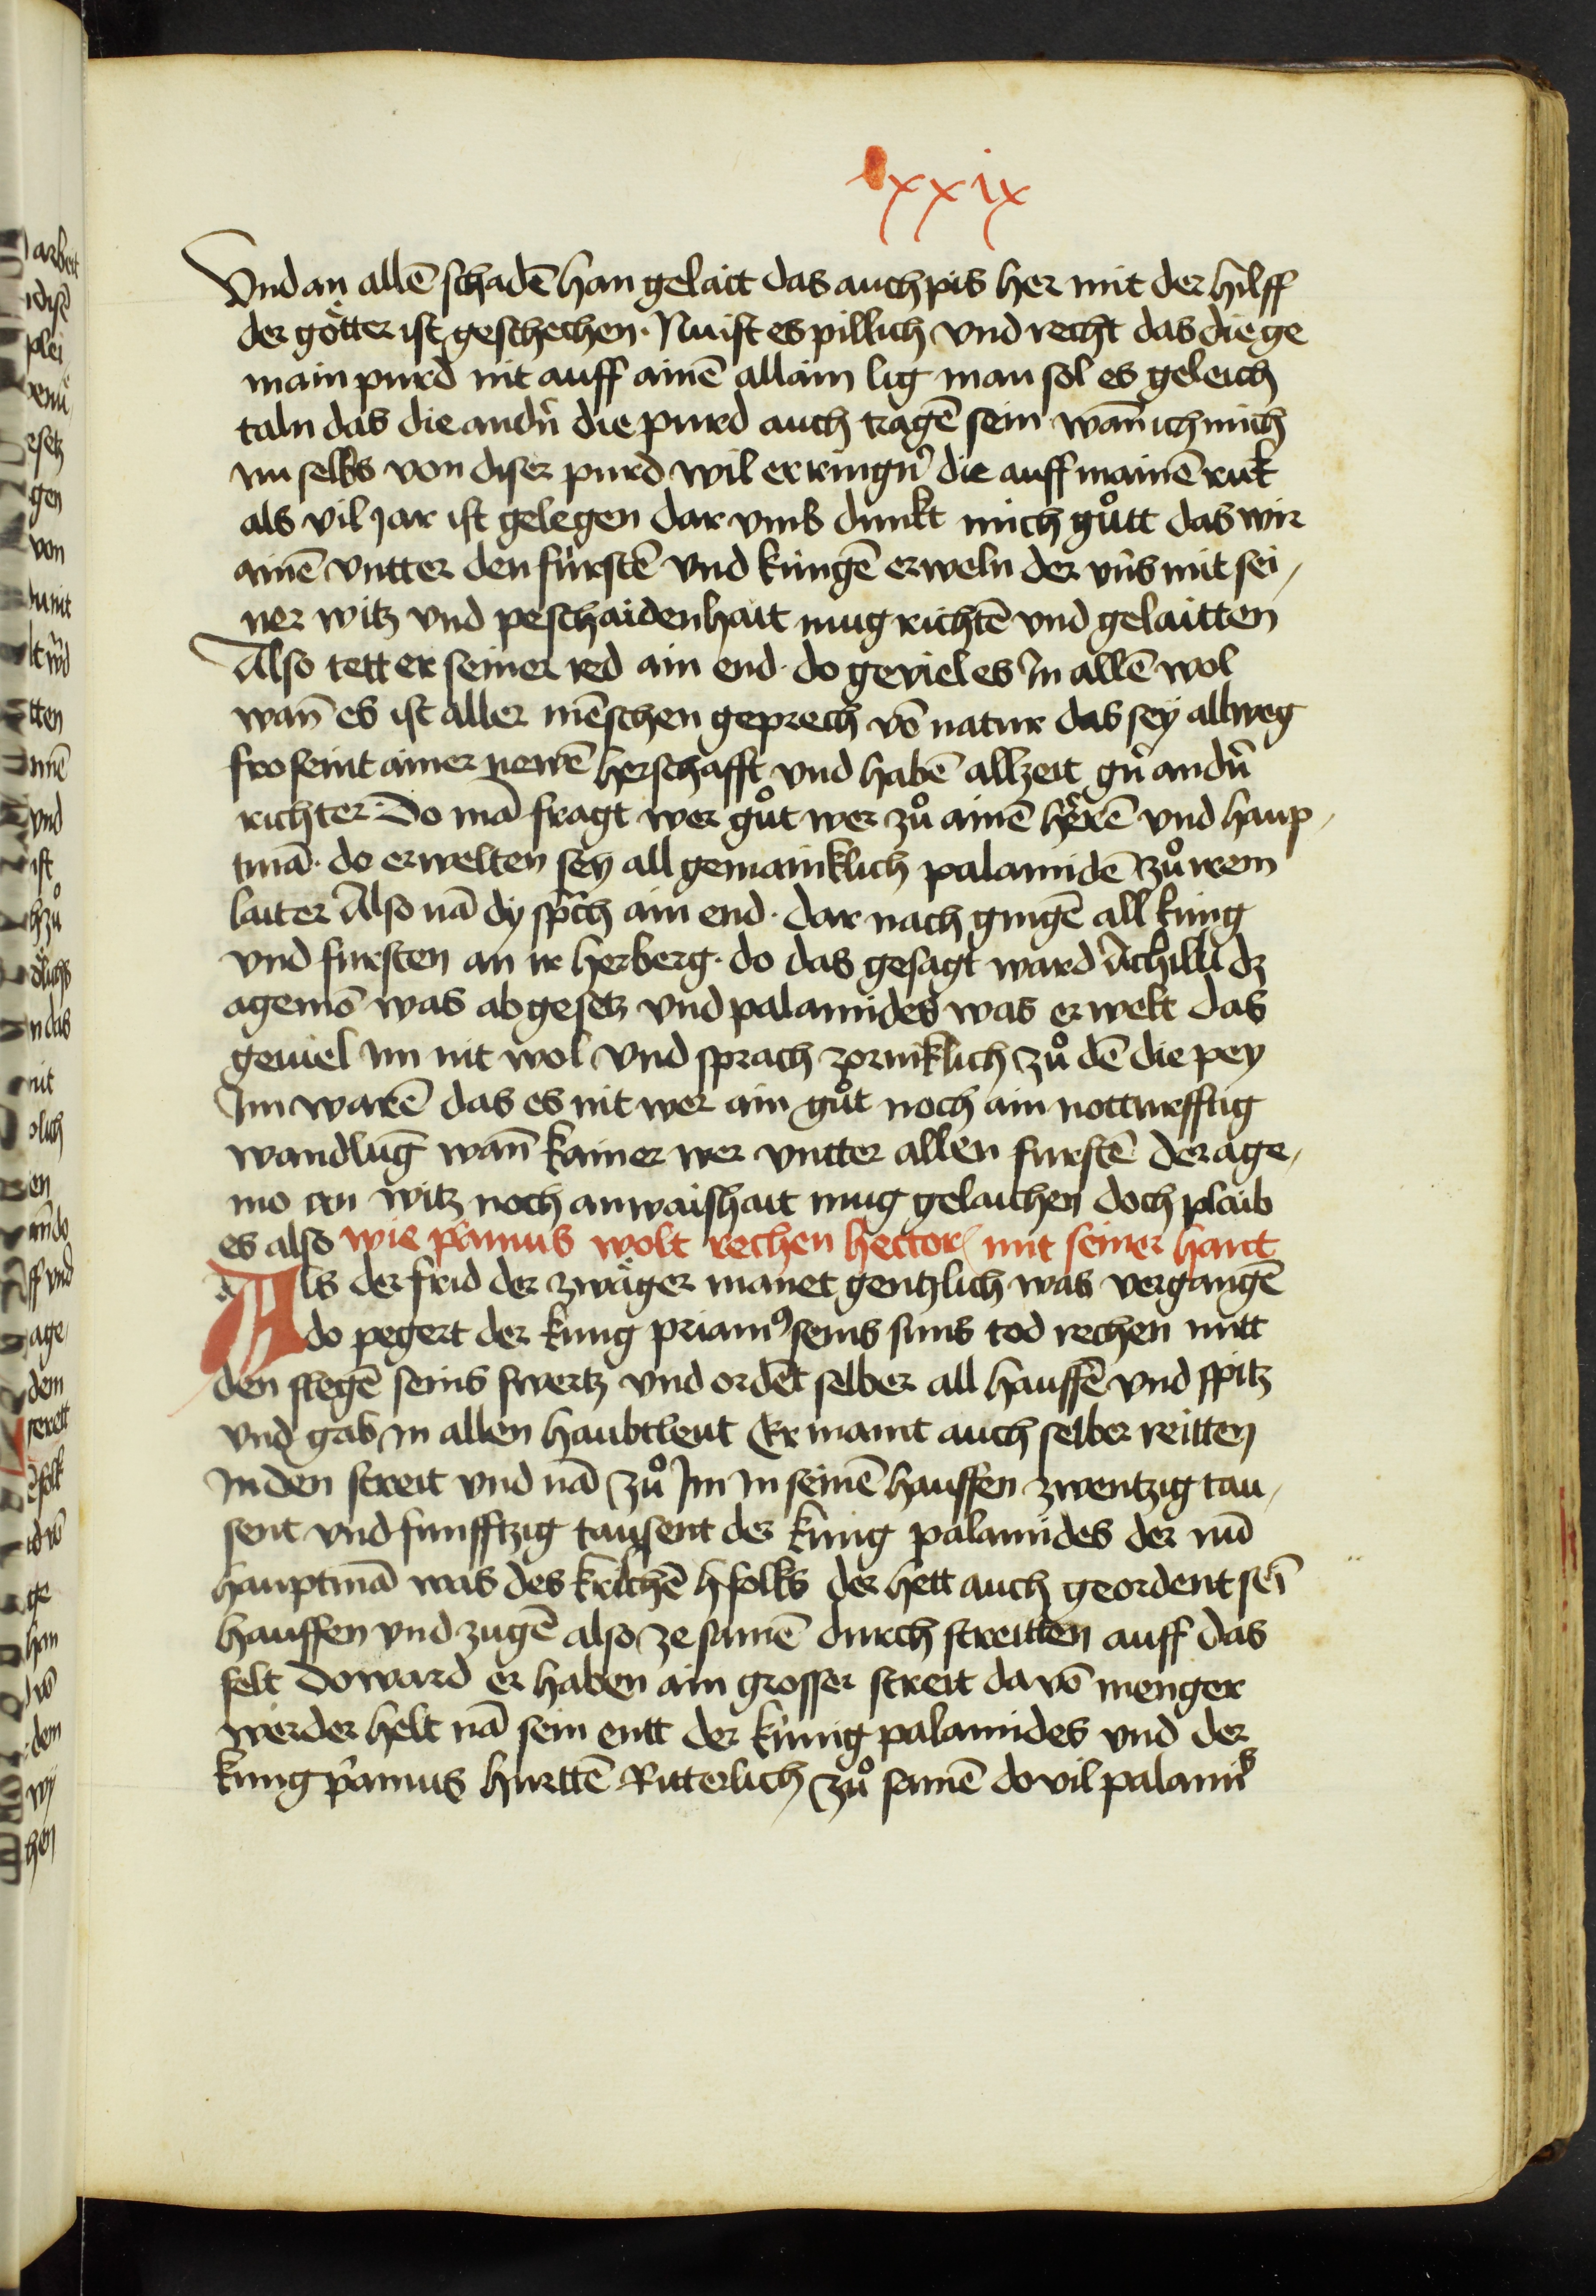 lxxix
Vnd an allē schadē han gelaitt das auch pis her mit der hilff
der götter ist geschechen · Nu ist es pillich vnd recht das die ge
main purd nit auff ainē allain lig man sol es geleich
taln das die andn̄ die purd auch tragē sein wan̄ ich mich
nu selbs von diser purd wil erringn̄ die auff mainē ruk
als vil jar ist gelegen dar vmb dunkt mich gůtt das wir
ainē vntter den fürstē vnd küngē erweln der vn̄s mit sei /
ner witz vnd peschaidenhait mug richtē vnd gelaitten
Also tett er seiner red ain end · do geviel es In allē wol
wan̄ es ist aller mēschen geprech vō natur das sey allweg
fro seint ainer newē herschafft vnd habē allzeit gn̄ andn̄
richter Do mā fragt wer gůt wer zů ainē herrē vnd haup /
tmā · do erwelten sey all gemainklich palamidē zů irem
laiter Also nā dy sp̄ch ain end · dar nach gingē all küng
vnd fursten an ir herberg · do das gesagt ward Achilli dz
agemō was abgesetz vnd palamides was erwelt das
geuiel im nit wol vnd sprach zorniklich zů dē die pey
Im warē das es nit wer ain gůt noch ain nottturfftig
wandlūg wan̄ kainer wer vntter allen furstē der age /
mo an witz noch an waishait mug gelaichen doch plaib
es also wie p̄amus wolt rechen hector mit seiner hant
Als der frid der zwäger manet gentzlich was vergangē
do pegert der kung priam9 seins suns tod rechen mitt
den slegē seins swertz vnd ordēt selber all hauffē vnd spitz
vnd gab in allen haubtleut Er maint auch selber reitten
In den streit vnd nā zů Im In seinē hauffen zwentzig tau /
sent vnd funfftzig tausent der küng palamides der nū
hauptmā was des krichē hfolks der hett auch geordent sei
hauffen vnd zugē also ze samē durch streitten auff das
felt Do ward er haben ain grosser streit da vō menger
werder helt nā sein entt der künig palamides vnd der
kung p̄amus hurttē Ritterlich zů samē do vil palamis